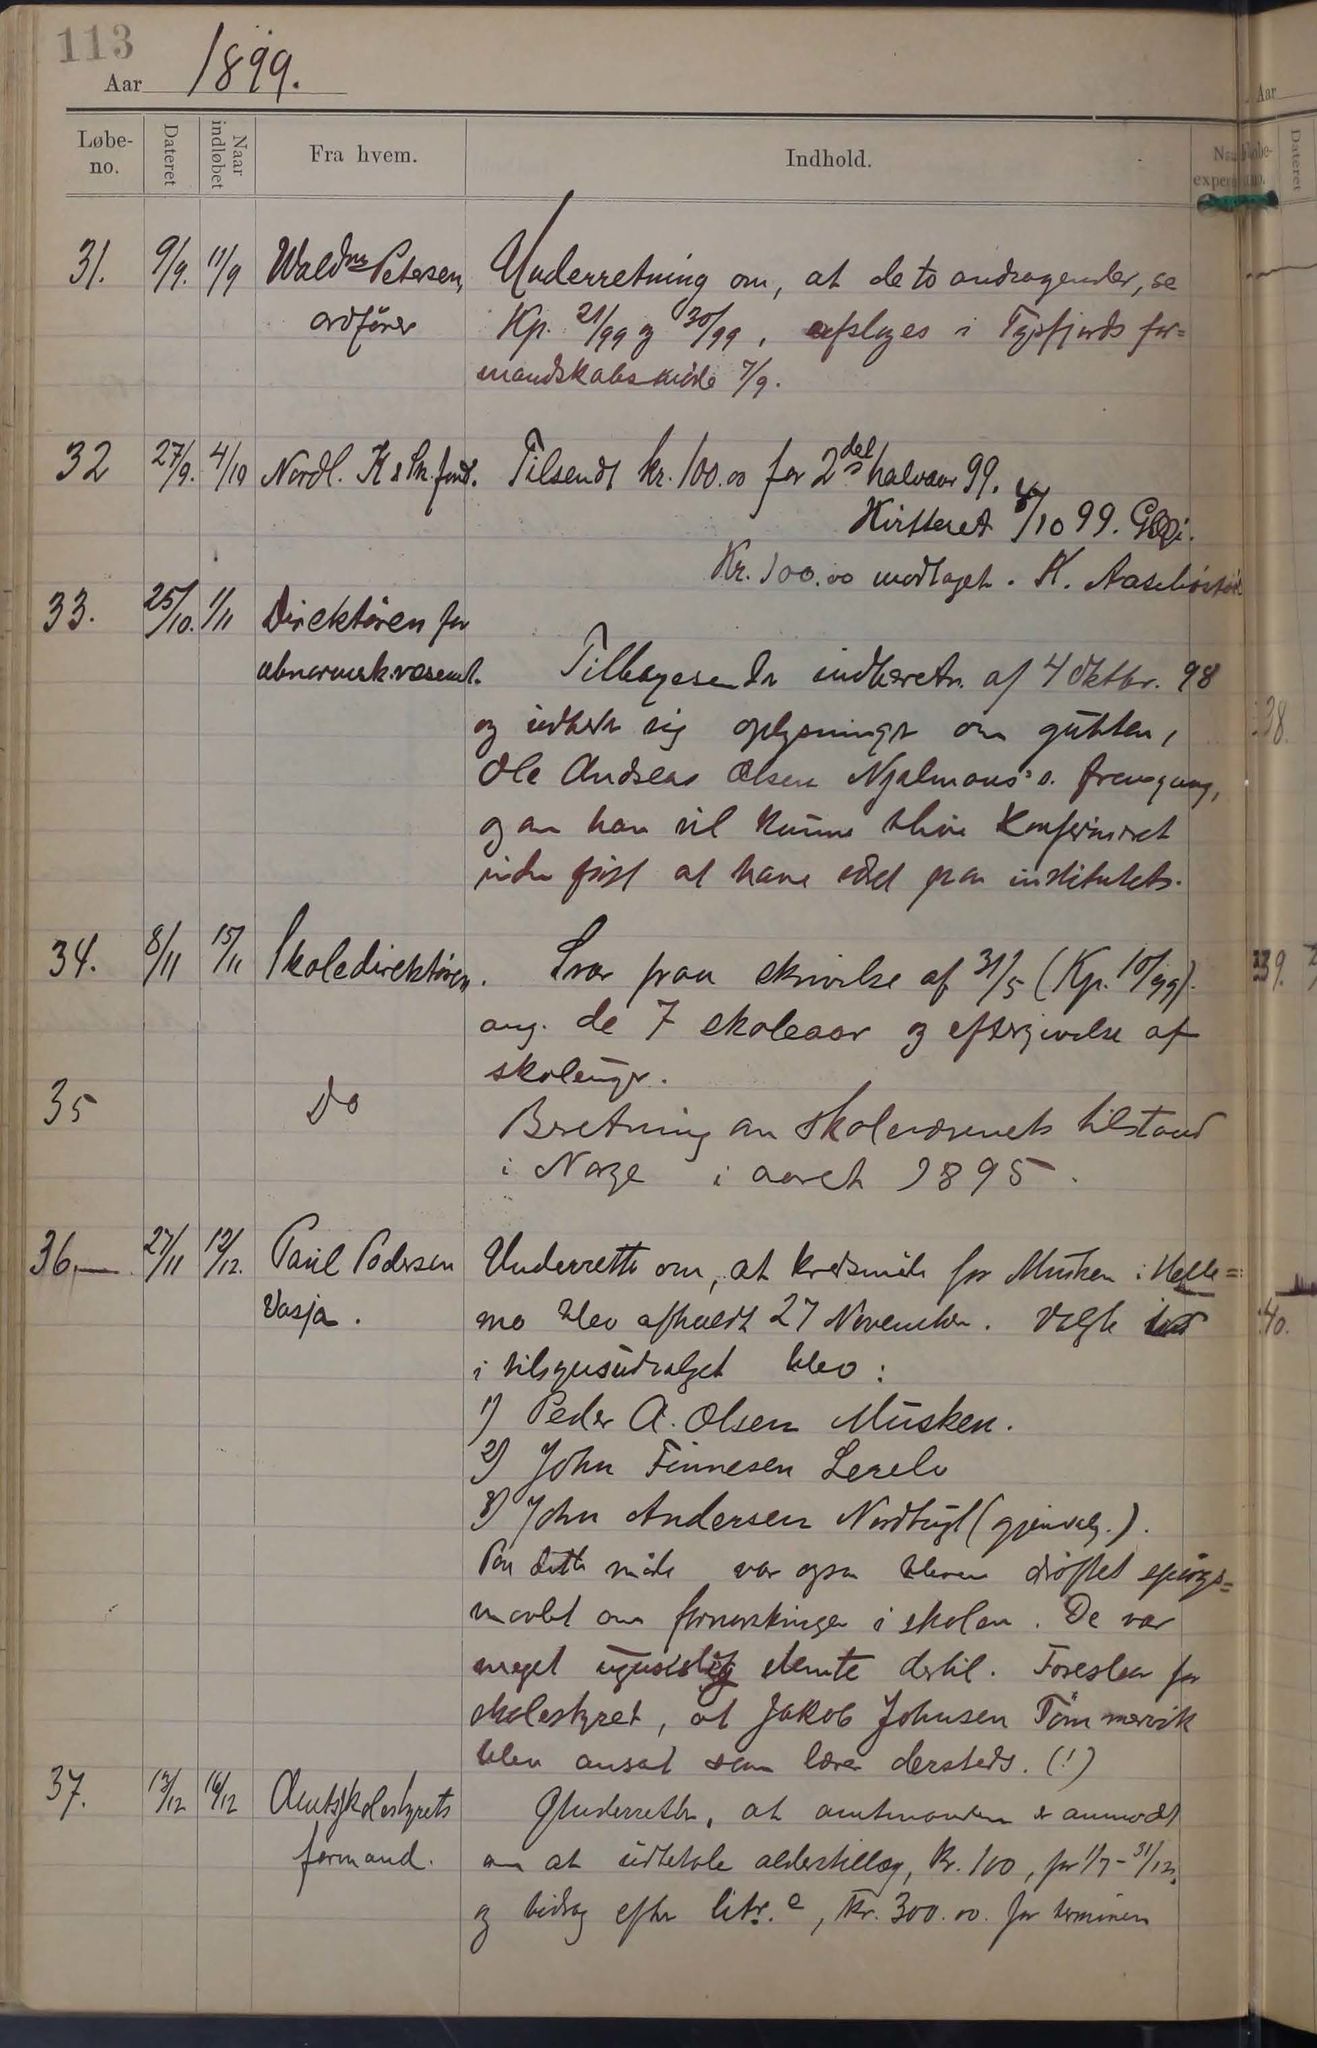 113
Aar 1899.
Løbe-no. Dateret Naar indløbet Fra hvem. Indhold.
31. 9/9. 11/9 Waldmr Petersen, Underretning om, at de to andragender, se
ordfører Kp. 21/99 og 30/99, afslages i Tysfjords for=
mandskabsmøde 7/9.
32 27/9. 4/10 Nordl. K & Sk. fond. Tilsendt kr. 100.00 for 2det halvaar 99.
Kvitteret 8/10 99.
Kr. 100.00 modtaget. K. Aasebøstøl
33. 25/10. 1/11 Direktøren for
abnormsk.væsenet. Tilbagesender indberetn. af 4 Oktbr. 98
og udbeder sig oplysninger om gutten,
Ole Andreas Olsen Njalmons's. fremgang,
og om han vil kunne blive konfirmeret
uden først at have været paa institutets.
34. 8/11 15/11 Skoledirektøren. Svar paa skrivelse af 31/5 (Kp. 10/99).
ang. de 7 skoleaar og eftergivelse af
skoleuger.
35 Do Beretning om skolevæsenets tilstand
i Norge i aaret 1895.
36, 27/11 12/12. Paul Pedersen Underretter om, at kredsmøde for Musken i Helle=
Vasja. mo blev afholdt 27 November. Valgte
i tilsynsudvalget blev:
1) Peder A. Olsen Musken.
2) John Finnesen
3) John Andersen Nordbugt (gjenvalg.).
Paa dette møde var ogsaa bleven drøftet spørgs=
maalet om fornorskningen i skolen. De var
meget ugunstig stemte dertil. Foreslaar for
skolestyret, at Jakob Johnsen Tømmervik
blev ansat som lærer dersteds. (!)
37. 12/12 16/12 Amtsskolestyrets Underretter, at amtmanden er anmodet
formand. om at udbetale alderstillæg, kr. 100, for 1/7 - 31/12,
og bidrag efter litr. e, kr. 300.00. for terminen
Aar
Dateret
38.
39.
40.